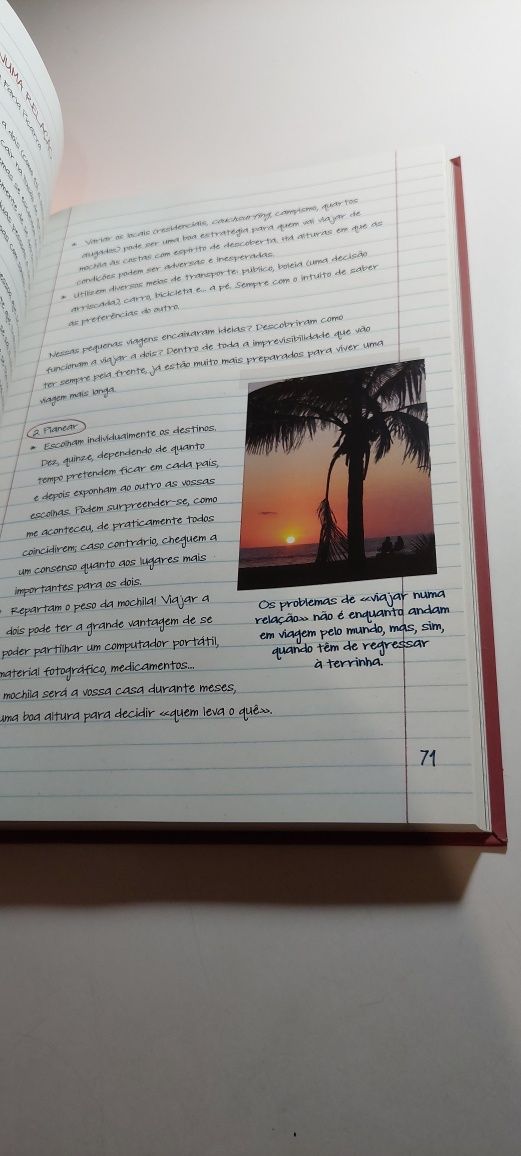 NUMA RELAÇÃO
• Variar os locais (residenciais, couchsurfing, campismo, quartos
alugados) pode ser uma boa estratégia para quem vai viajar de
mochila às costas com espírito de descoberta. Há alturas em que as
condições podem ser adversas e inesperadas.
• Utilizem diversos meios de transporte: público, boleia (uma decisão
arriscada), carro, bicicleta e... a pé. Sempre com o intuito de saber
as preferências do outro.
Nessas pequenas viagens encaixaram ideias? Descobriram como
funcionam a viajar a dois? Dentro de toda a imprevisibilidade que vão
ter sempre pela frente, já estão muito mais preparados para viver uma
viagem mais longa.
2. Planear
• Escolham individualmente os destinos.
Dez, quinze, dependendo de quanto
tempo pretendem ficar em cada país,
e depois exponham ao outro as vossas
escolhas. Podem surpreender-se, como
me aconteceu, de praticamente todos
coincidirem; caso contrário, cheguem a
um consenso quanto aos lugares mais
importantes para os dois.
• Repartam o peso da mochila! Viajar a
dois pode ter a grande vantagem de se
poder partilhar um computador portátil,
material fotográfico, medicamentos...
mochila será a vossa casa durante meses,
uma boa altura para decidir «quem leva o quê».
Os problemas de «viajar numa
relação» não é enquanto andam
em viagem pelo mundo, mas, sim,
quando têm de regressar
à terrinha.
71